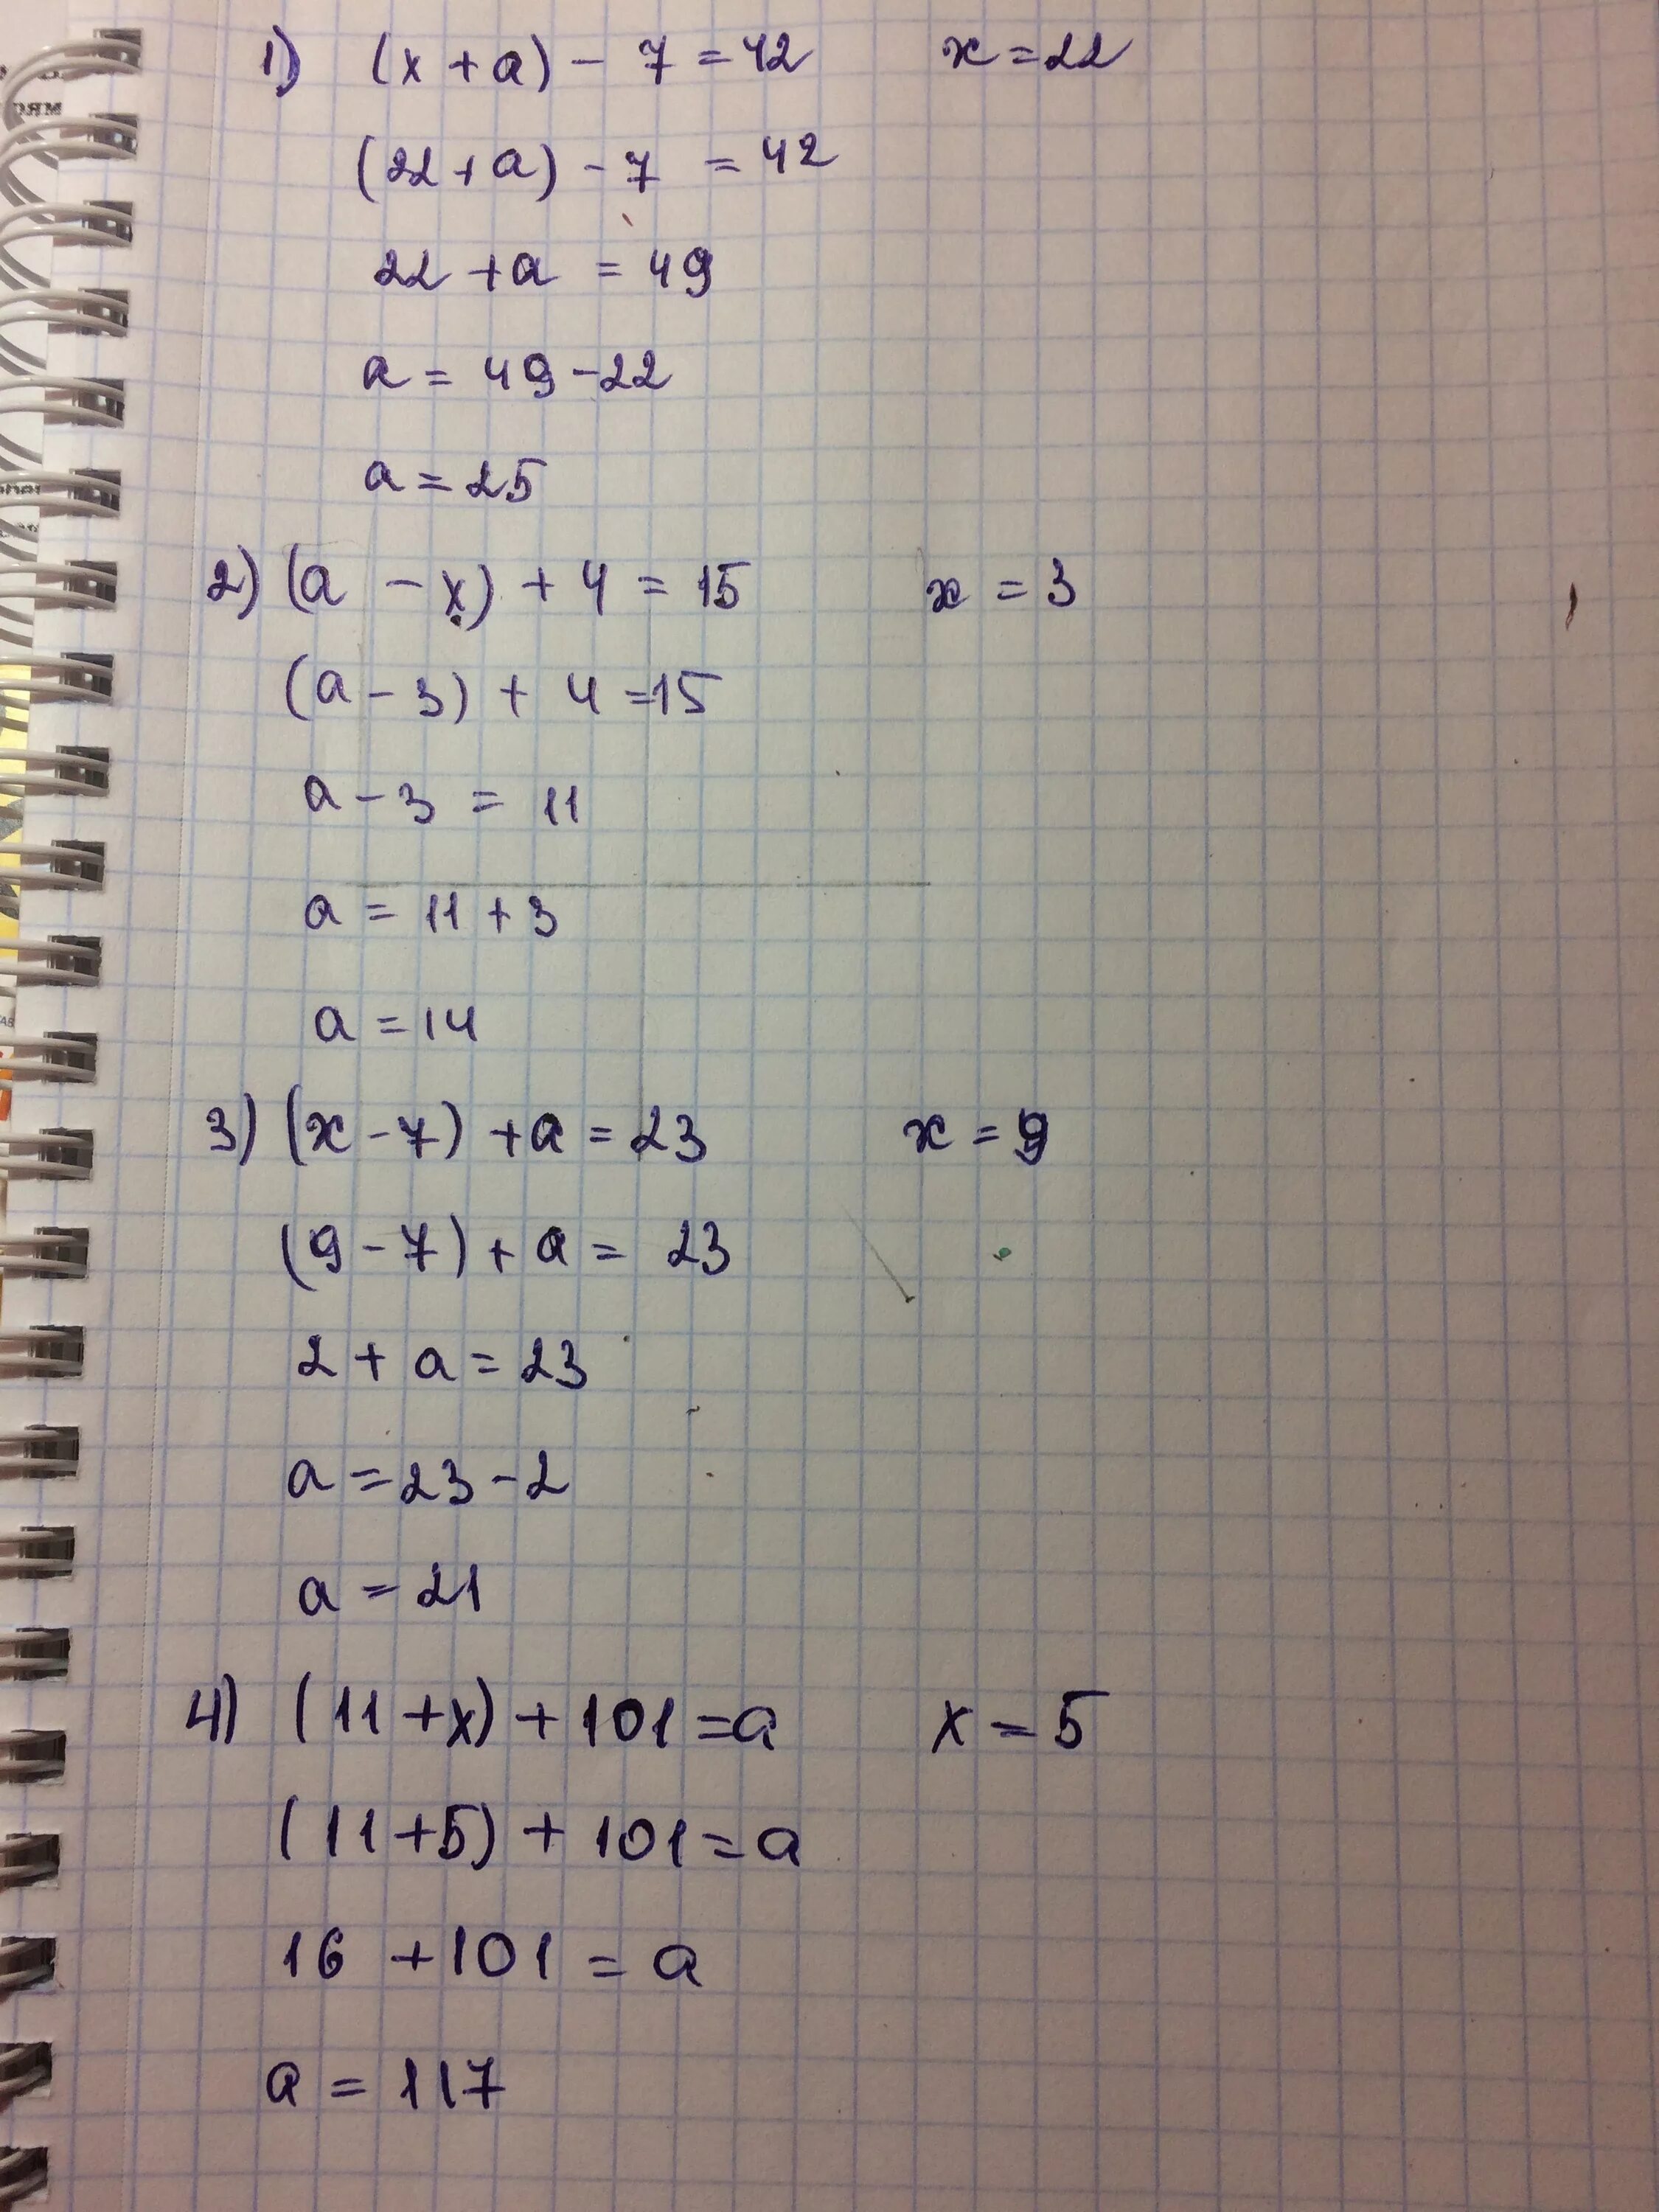 1) (x + a) - 7 = 42 x = 22
(22 + a) - 7 = 42
22 + a = 49
a = 49 - 22
a = 25
2) (a - x) + 4 = 15 x = 3
(a - 3) + 4 = 15
a - 3 = 11
a = 11 + 3
a = 14
3) (x - 7) + a = 23 x = 9
(9 - 7) + a = 23
2 + a = 23
a = 23 - 2
a = 21
4) (11 + x) + 101 = a x = 5
(11 + 5) + 101 = a
16 + 101 = a
a = 117